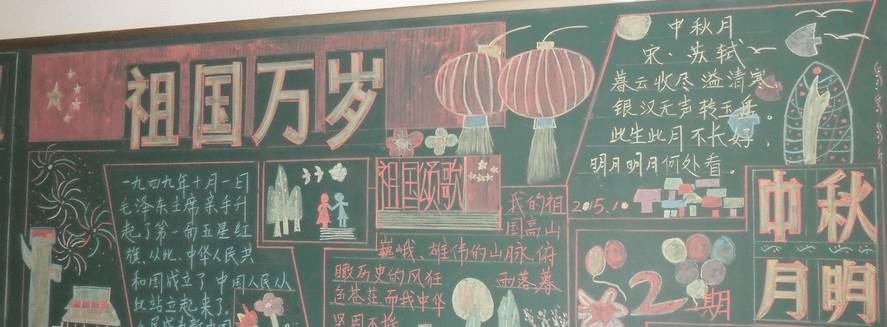 祖国万岁
一九四九年十月一日
毛泽东主席亲手升
起了第一面五星红
旗，从此，中华人民共
和国成立了 中国人民从
此站立起来了，
祖国颂歌
我的祖
国高山
巍峨，雄伟的山脉，俯
瞰历史的风狂 雨落暮
色苍茫 而我中华
坚固不摧
中秋月
宋、苏轼
暮云收尽溢清寒，
银汉无声转玉盘。
此生此月不长好，
明月明月何处看。
2015.10
中秋
月明
2期